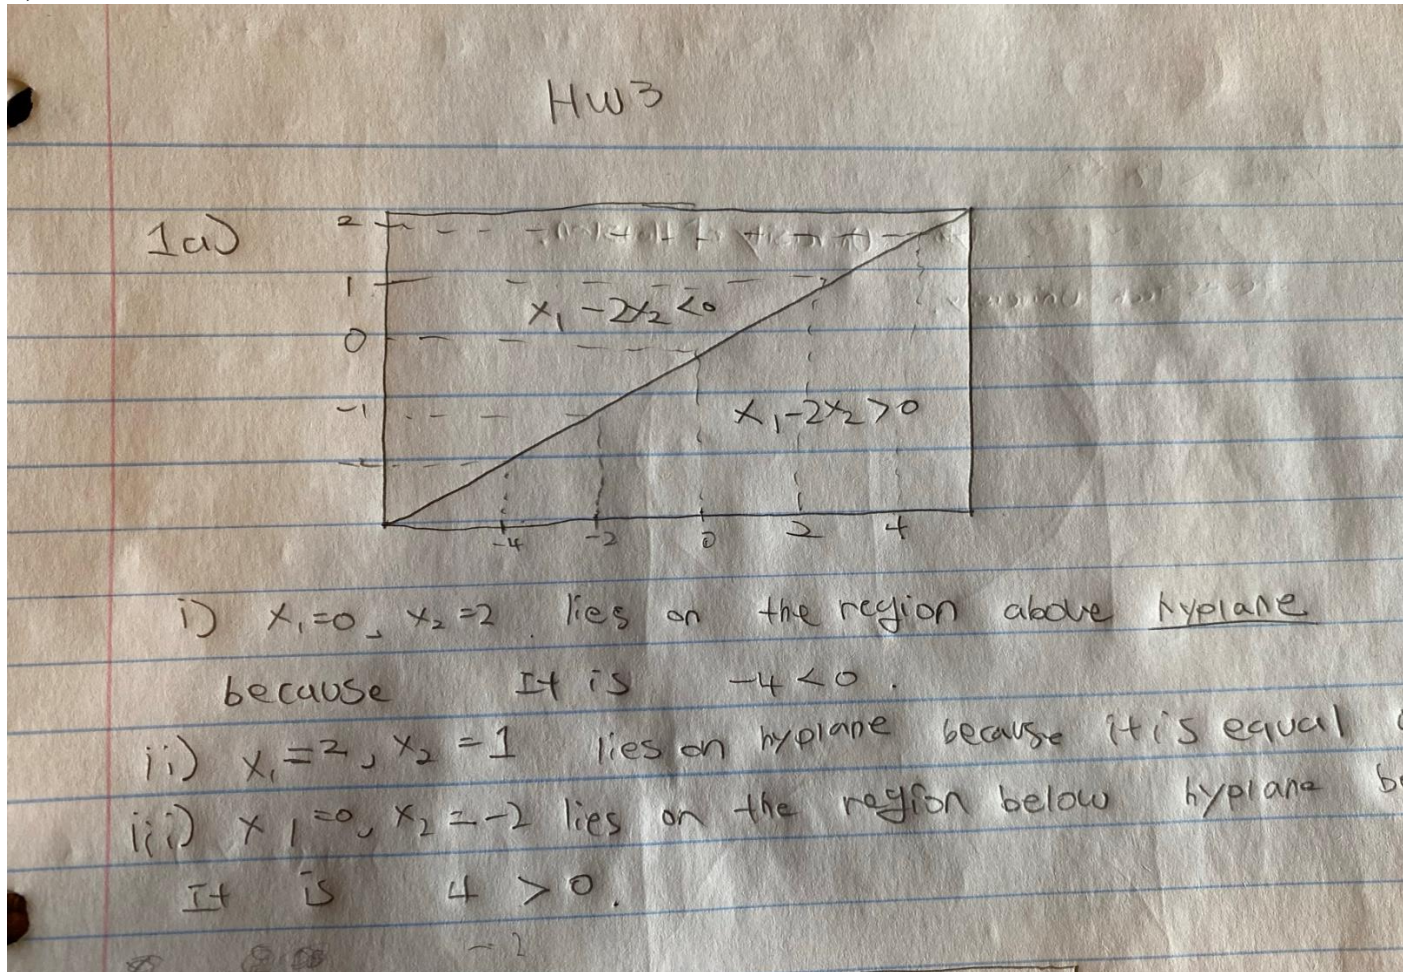 HW3
1a)
2
1
x₁ - 2x₂ < 0
0
-1
x₁ - 2x₂ > 0
-4 -2 0 2 4
i) x₁=0, x₂=2 lies on the region above hyplane
because It is -4 < 0.
ii) x₁=2, x₂=1 lies on hyplane because it is equal
iii) x₁=0, x₂=-2 lies on the region below hyplane be
It is 4 > 0.
-2